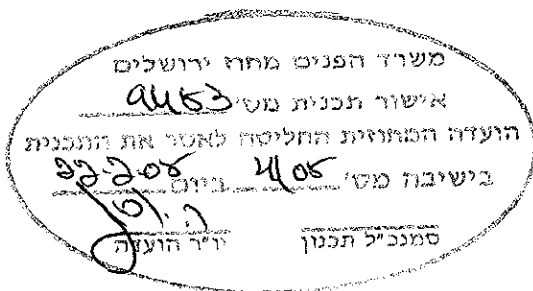 משרד הפנים מחוז ירושלים
אישור תכנית מס'
הועדה המחוזית החליטה לאשר את התכנית
בישיבה מס' 4/05 ביום 22.2.05
סמנכ"ל תכנון יו"ר הועדה